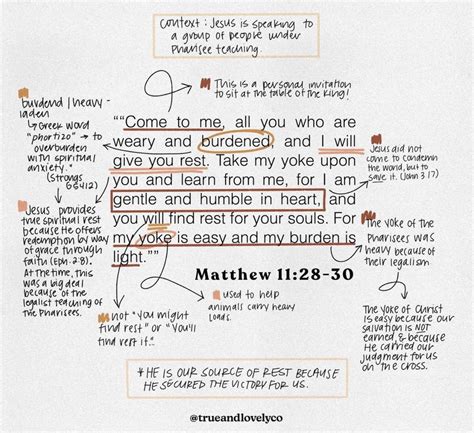 Context: Jesus is speaking to
a group of people under
Pharisee teaching.
This is a personal invitation
to sit at the table of the King!
burdend/heavy-
laden
↳ Greek word
"phortizo" → to
overburden
with spiritual
anxiety."
(Strongs
G5412)
""Come to me, all you who are
weary and burdened, and I will
give you rest. Take my yoke upon
you and learn from me, for I am
gentle and humble in heart, and
you will find rest for your souls. For
my yoke is easy and my burden is
light.""
Matthew 11:28-30
Jesus did not
come to condemn
the world, but to
save it. (John 3:17)
Jesus provides
true spiritual rest
because He offers
redemption by way
of grace through
faith (Eph. 2:8).
At the time, this
was needed
because of the
legalist teaching of
the Pharisees.
The yoke of the
Pharisees was
heavy because of
their legalism
The yoke of Christ
is easy because our
salvation is NOT
earned, & because
He carried our
judgment for us
on the cross.
not "you might
find rest" or "you'll
find rest if.."
used to help
animals carry heavy
loads.
*HE IS OUR SOURCE OF REST BECAUSE
HE SECURED THE VICTORY FOR US.
@trueandlovelyco